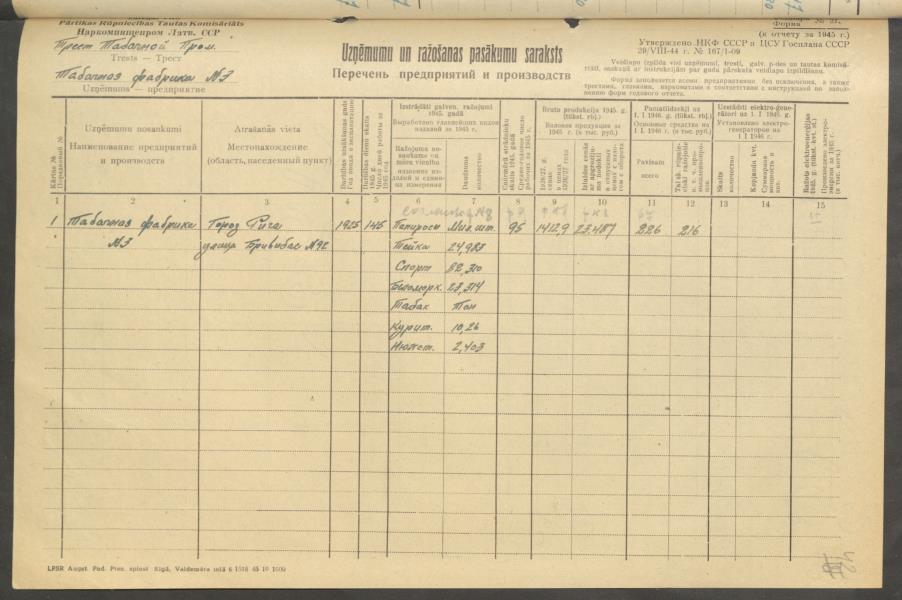 Pārtikas Rūpniecības Tautas Komisāriāts
Наркомпищепром Латв. ССР
Трест Табачной Пром.
Trests — Трест
Табачная фабрика №3
Uzņēmums — предприятие
Uzņēmumu un ražošanas pasākumu saraksts
Перечень предприятий и производств
Форма
(к отчету за 1945 г.)
Утверждено НКФ СССР и ЦСУ Госплана СССР
29/VIII-44 г. № 167/1-09
Veidlapu izpilda visi uzņēmumi, tresti, galv. p-des un tautas komisāriāti, saskaņā ar instrukcijām par gada pārskata veidlapu izpildīšanu.
Форма заполняется всеми предприятиями без исключения, а также трестами, главками, наркоматами в соответствии с инструкцией по заполнению форм годового отчета.
Kārtas №
Порядковый №
Uzņēmumu nosaukumi
Наименование предприятий и производств
Atrašanās vieta
Местонахождение
(область, населенный пункт)
Darbības uzsākšanas gads
Год ввода в эксплоатацию
Darbības dienu skaits 1945 g.
Число дней работы за 1945 год
Izstrādāti galven. ražojumi 1945. gadā
Выработано главнейших видов изделий за 1945 г.
Ražojuma nosaukums un mēra vienība
название изделий и единица измерения
Daudzums
количество
Caurmērā strādnieku skaits 1945. gadā
Среднегодовое число рабочих за 1945 г.
Bruto produkcija 1945. g. (tūkst. rbļ.)
Валовая продукция за 1945 г. (в тыс. руб.)
1926/27. g. cenās
в ценах 1926/27 года
Pamatlīdzekļi uz 1. I 1946. g. (tūkst. rbļ.)
Основные средства на 1 I 1946 г. (в тыс. руб.)
Pavisam
всего
Uzstādīti elektro-ģeneratori uz 1. I 1946 g.
Установлено электрогенераторов на 1 I 1946 г.
Skaits
количество
Kopjauda kvt.
Суммарная мощность в квт.
Ražots elektroenerģijas 1945. g. (tūkst. kvt. st.)
Произведено электроэнергии за 1945 г. (в тыс. квтч)
1 2 3 4 5 6 7 8 9 10 11 12 13 14 15
1 Табачная фабрика Город Рига 1925 145 Папиросы Мил. шт. 95 1412,9 23,487 226 216
№3 улица Бривибас №92 Тейка 24,983
Спорт 62,310
Беломорк. 23,314
Табак Тон
Курит. 10,26
Нюхат. 2,403
LPSR Augst. Pad. Prez. spiest Rīgā, Valdemāra ielā 6 1518 45 10 1000